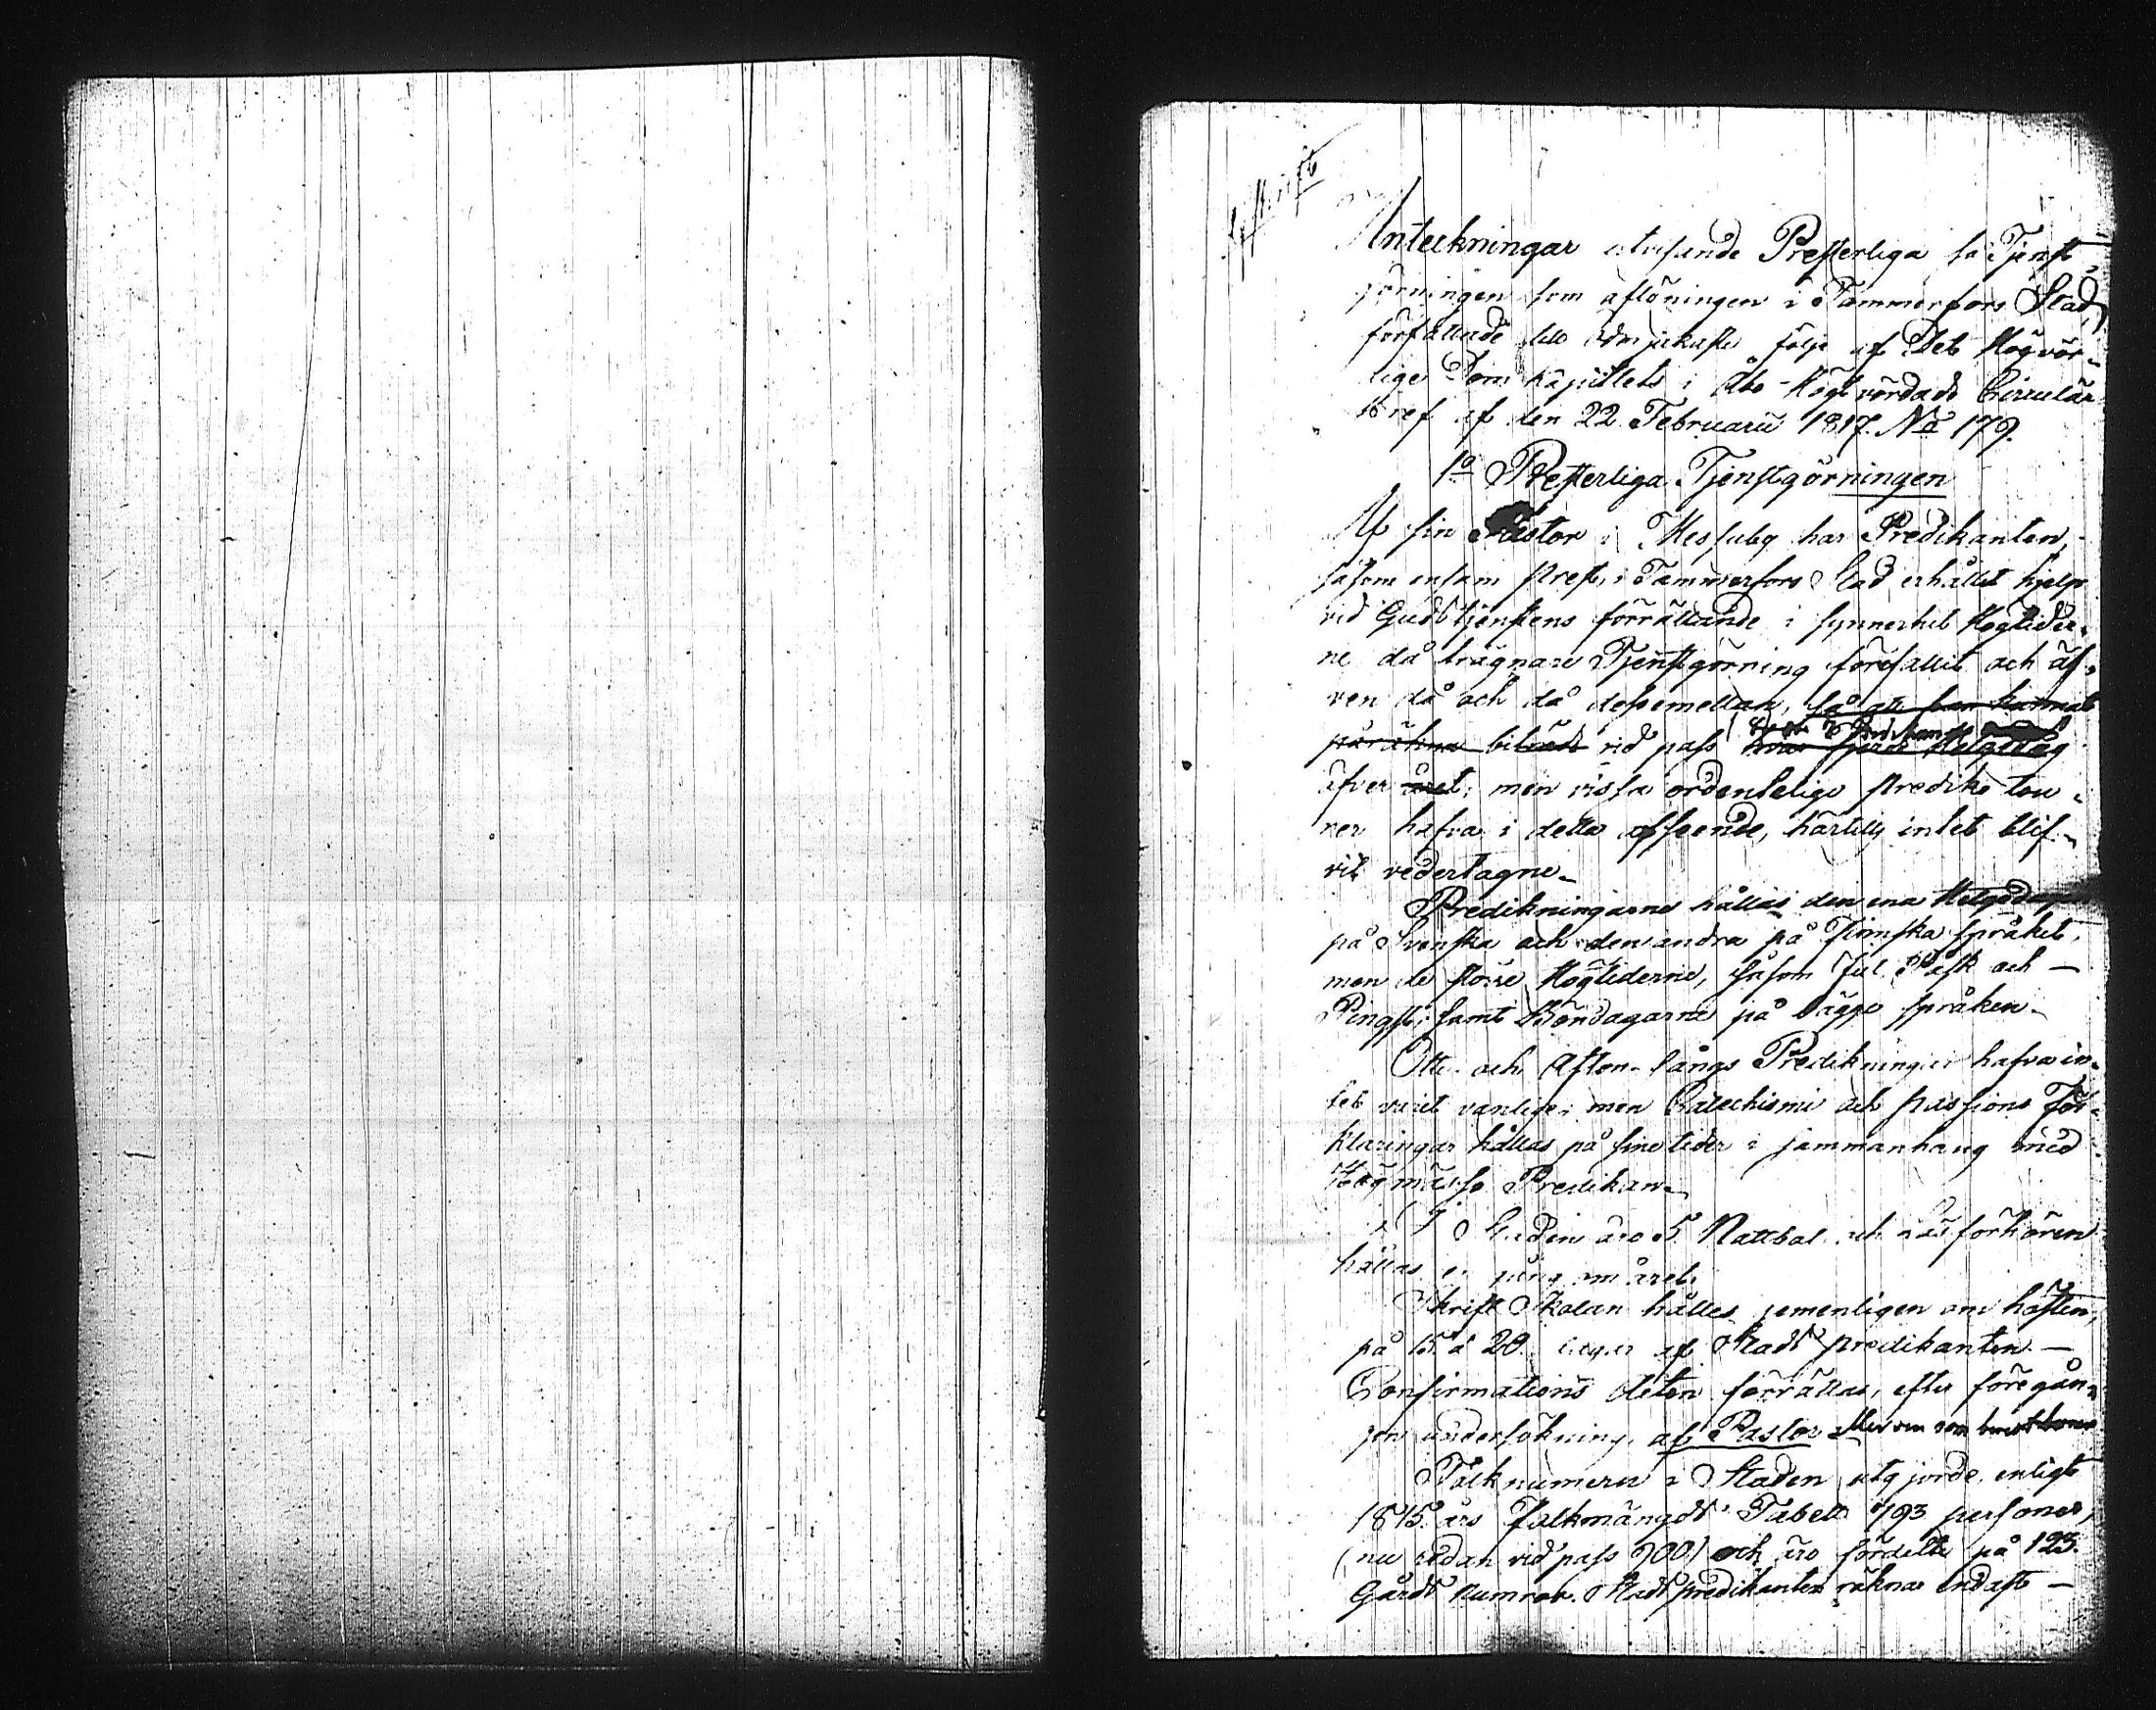 Afskrift
Anteckningar utvisande Presterliga så Tjenst-
görningen som aflöningen i Tammerfors Stad,
författade till ödmjukaste följe af Det Högvör-
dige Dom Kapitlets i Åbo Högtvördade Circulär
bref af den 22 Februarii 1817. No 179.
1o Presterliga Tjenstgörningen
Af sin Pastor i Messuby har Predikanten,
såsom ensam Prest, i Tammerfors Stad erhållit hjelp
vid Gudstjenstens förrättande i synnerhet Högtider-
ne då trägnare Tjenstgörning förefallit och äf-
ven då och då dessemellan, så att han kunnat
påräkna biträde vid pass hvar fjerde Helgedag
öfver året; men vissa ordenteliga Predike tou-
rer hafva i detta afseende, härtills intet blif-
vit vedertagne.
Predikningarne hållas den ena Helgedag
på Svenska och den andra på Finnska språket,
men de störe Högtiderne, såsom Jul, Påsk och
Pingst, samt Böndagarne på bägge språken.
Otte- och Aftonsångs Predikningar hafva in-
tet varit vanlige; men Catechismi och Passions För-
klaringar hållas på sine tider i sammanhang med
Högmässo Predikan.
I Staden äro 5 Rattsal och Läsförhören
hållas en gång om året.
Skrift Skolan hålles gemenligen om hösten,
på 15 à 20 dagar af Stads predikanten.
Confirmations Acten förrättas, efter föregån-
gen undersökning, af Pastor eller den som
Folknumern i Staden utgjorde enligt
1815 års Folkmängds Tabell 793 personer,
(nu redan vid pass 900) och äro fördelte på 123
Gårds Numror. Stads predikanten räknar endast